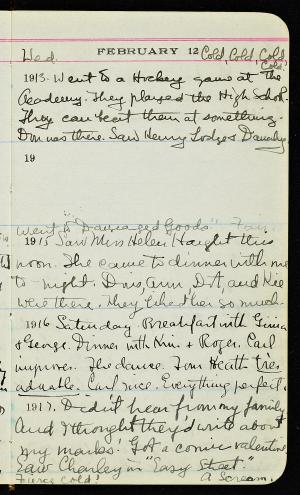 Wed. FEBRUARY 12 Cold, Cold, Cold
Cold!
1913. Went to a Hockey game at the
Academy. They played the High School.
They can beat them at something.
Don was there. Saw Henry Lodge &
19
went to "Damaged Goods" Fair
1915 Saw Miss Helen Haught this
noon. She came to dinner with me
to-night. Dris, Ann, D.A, and Kee
were there. They like her so much.
1916 Saturday. Breakfast with
& George. Dinner with Kim. & Roger. Carl
improves. The dance. Tom Heath
Carl nice. Everything perfect.
1917. Didn't hear from my family
And I thought they'd write about
my marks! Got a comic valentine
Saw Charley in "Easy Street."
Fierce cold! A Scream.